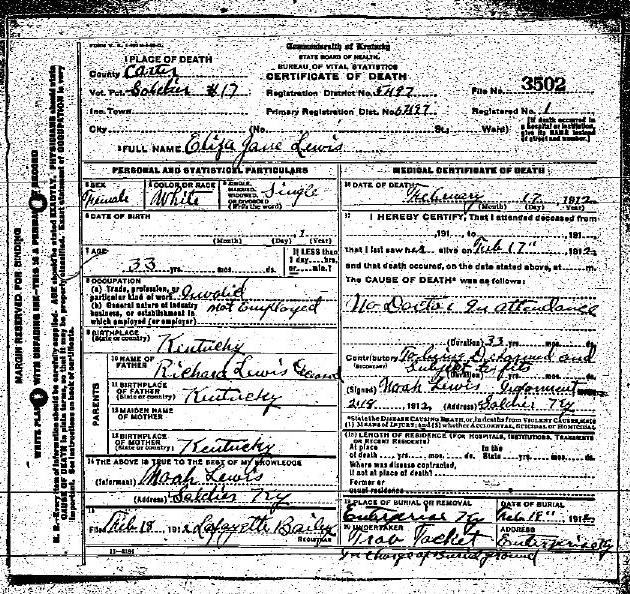 Commonwealth of Kentucky
STATE BOARD OF HEALTH
BUREAU OF VITAL STATISTICS
CERTIFICATE OF DEATH
1 PLACE OF DEATH
County Carter
Vot. Pct. Soldier #17
Registration District No. 5497
File No. 3502
Inc. Town
Primary Registration Dist. No. 5497
Registered No. 1
City (No. St.; Ward)
[If death occurred in a hospital or institution give its NAME instead of street and number.]
2 FULL NAME Eliza Jane Lewis
PERSONAL AND STATISTICAL PARTICULARS
3 SEX Female
4 COLOR OR RACE White
5 SINGLE, MARRIED, WIDOWED OR DIVORCED (Write the word) Single
6 DATE OF BIRTH
(Month) (Day) (Year)
7 AGE 33 yrs. mos. ds.
If LESS than 1 day... hrs. or... min.?
8 OCCUPATION
(a) Trade, profession, or particular kind of work Invalid
(b) General nature of industry business, or establishment in which employed (or employer) not Employed
9 BIRTHPLACE (State or country) Kentucky
PARENTS
10 NAME OF FATHER Richard Lewis
11 BIRTHPLACE OF FATHER (State or country) Kentucky
12 MAIDEN NAME OF MOTHER
13 BIRTHPLACE OF MOTHER (State or country) Kentucky
14 THE ABOVE IS TRUE TO THE BEST OF MY KNOWLEDGE
(Informant) Noah Lewis
(Address) Ky
15
Filed Feb 18 1912 Lafayette Bailey
REGISTRAR
MEDICAL CERTIFICATE OF DEATH
16 DATE OF DEATH February 17 1912
(Month) (Day) (Year)
17 I HEREBY CERTIFY, That I attended deceased from
191 to 191
that I last saw her alive on Feb 17" 1912
and that death occured, on the date stated above, at m.
The CAUSE OF DEATH* was as follows:
No Doctor in attendance
(Duration) 33 yrs. mos. ds.
Contributory and
(SECONDARY) Subject to fits
(Duration) yrs. mos. ds.
(Signed) Noah Lewis Informant
2-18, 1912 (Address) Ky
*State the DISEASE CAUSING DEATH, or, in deaths from VIOLENT CAUSES, state (1) MEANS OF INJURY; and (2) whether ACCIDENTAL, SUICIDAL OR HOMICIDAL
18 LENGTH OF RESIDENCE (FOR HOSPITALS, INSTITUTIONS, TRANSIENTS OR RECENT RESIDENTS)
At place of death yrs. mos. ds. In the State yrs. mos. ds.
Where was disease contracted, if not at place of death?
Former or usual residence
19 PLACE OF BURIAL OR REMOVAL Enterprise Ky
DATE OF BURIAL Feb 18" 1912
20 UNDERTAKER
ADDRESS Enterprise Ky
In Charge of Burial ground
MARGIN RESERVED FOR BINDING